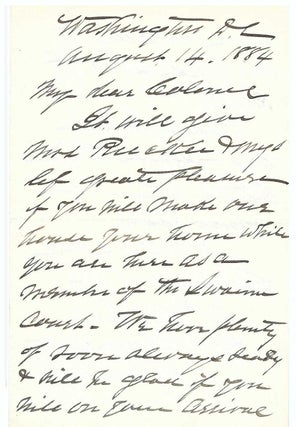 Washington D.C
August 14. 1884
My dear Colonel
It will give
Mrs Rucker & my
self great pleasure
if you will make our
house your home while
you are here as a
member of the Swaim
Court. We have plenty
of room always ready
& will be glad if you
will on your arrival